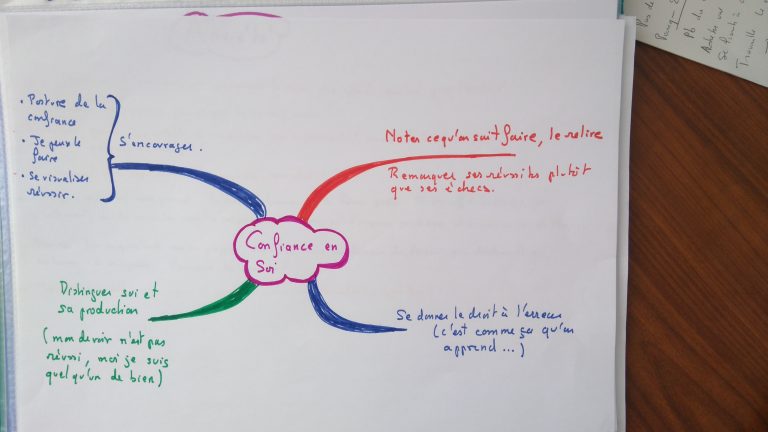 Confiance en
Soi
Noter ce qu'on sait faire, le relire
Remarquer ses réussites plutôt
que ses échecs.
Se donner le droit à l'erreur
(c'est comme ça qu'on
apprend...)
Distinguer soi et
sa production
(mon devoir n'est pas
réussi, moi je suis
quelqu'un de bien)
S'encourager.
• Posture de la
confiance
• Je peux le
faire
• Se visualiser
réussir.
Pas de
Pb du